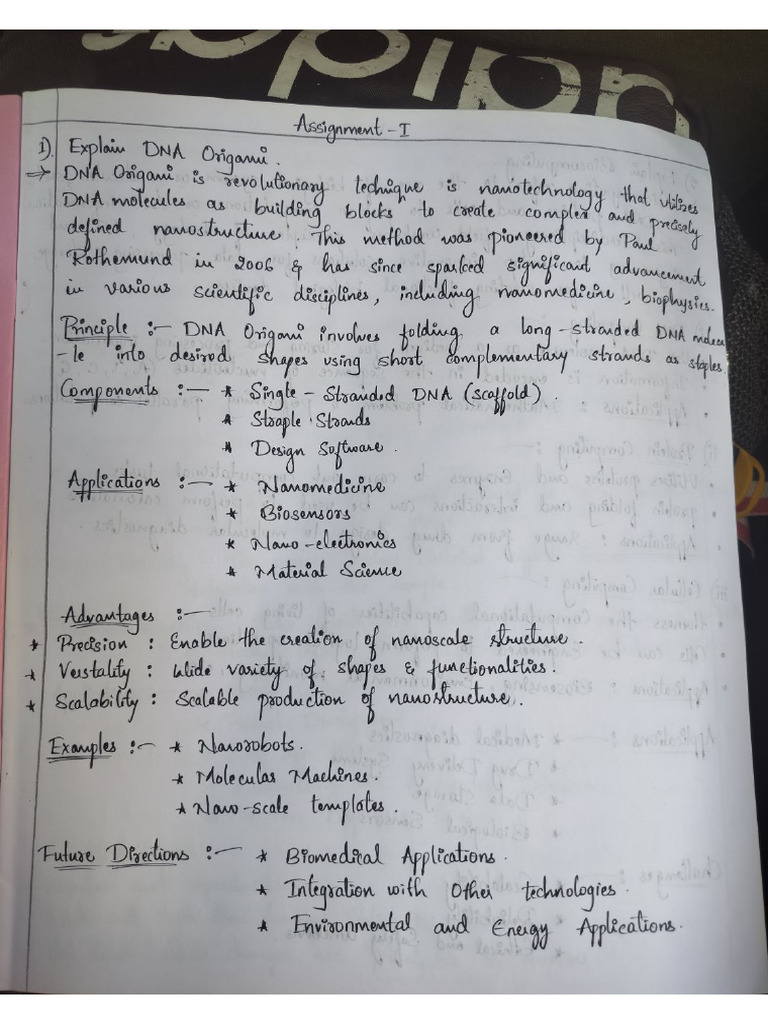 Assignment - I
1). Explain DNA Origami.
→ DNA Origami is revolutionary techique is nanotechnology that utilizes
DNA molecules as building blocks to create complex and precisely
defined nanostructure. This method was pioneered by Paul
Rothemund in 2006 & has since sparked significant advancement
in various scientific disciplines, including nanomedicine, biophysics.
Principle :- DNA Origami involves folding a long-stranded DNA molecu
-le into desired shapes using short complementary strands as staples.
Components :- * Single-Stranded DNA (scaffold).
* Straple Strands
* Design Software.
Applications :- * Nanomedicine
* Biosensors
* Nano-electronics
* Material Science
Advantages :-
* Precision : Enable the creation of nanoscale structure.
* Verstality : Wide variety of shapes & functionalities.
* Scalability : Scalable production of nanostructure.
Examples :- * Nanorobots.
* Molecular Machines.
* Nano-scale templates.
Future Directions :- * Biomedical Applications.
* Integration with Other technologies.
* Environmental and Energy Applications.